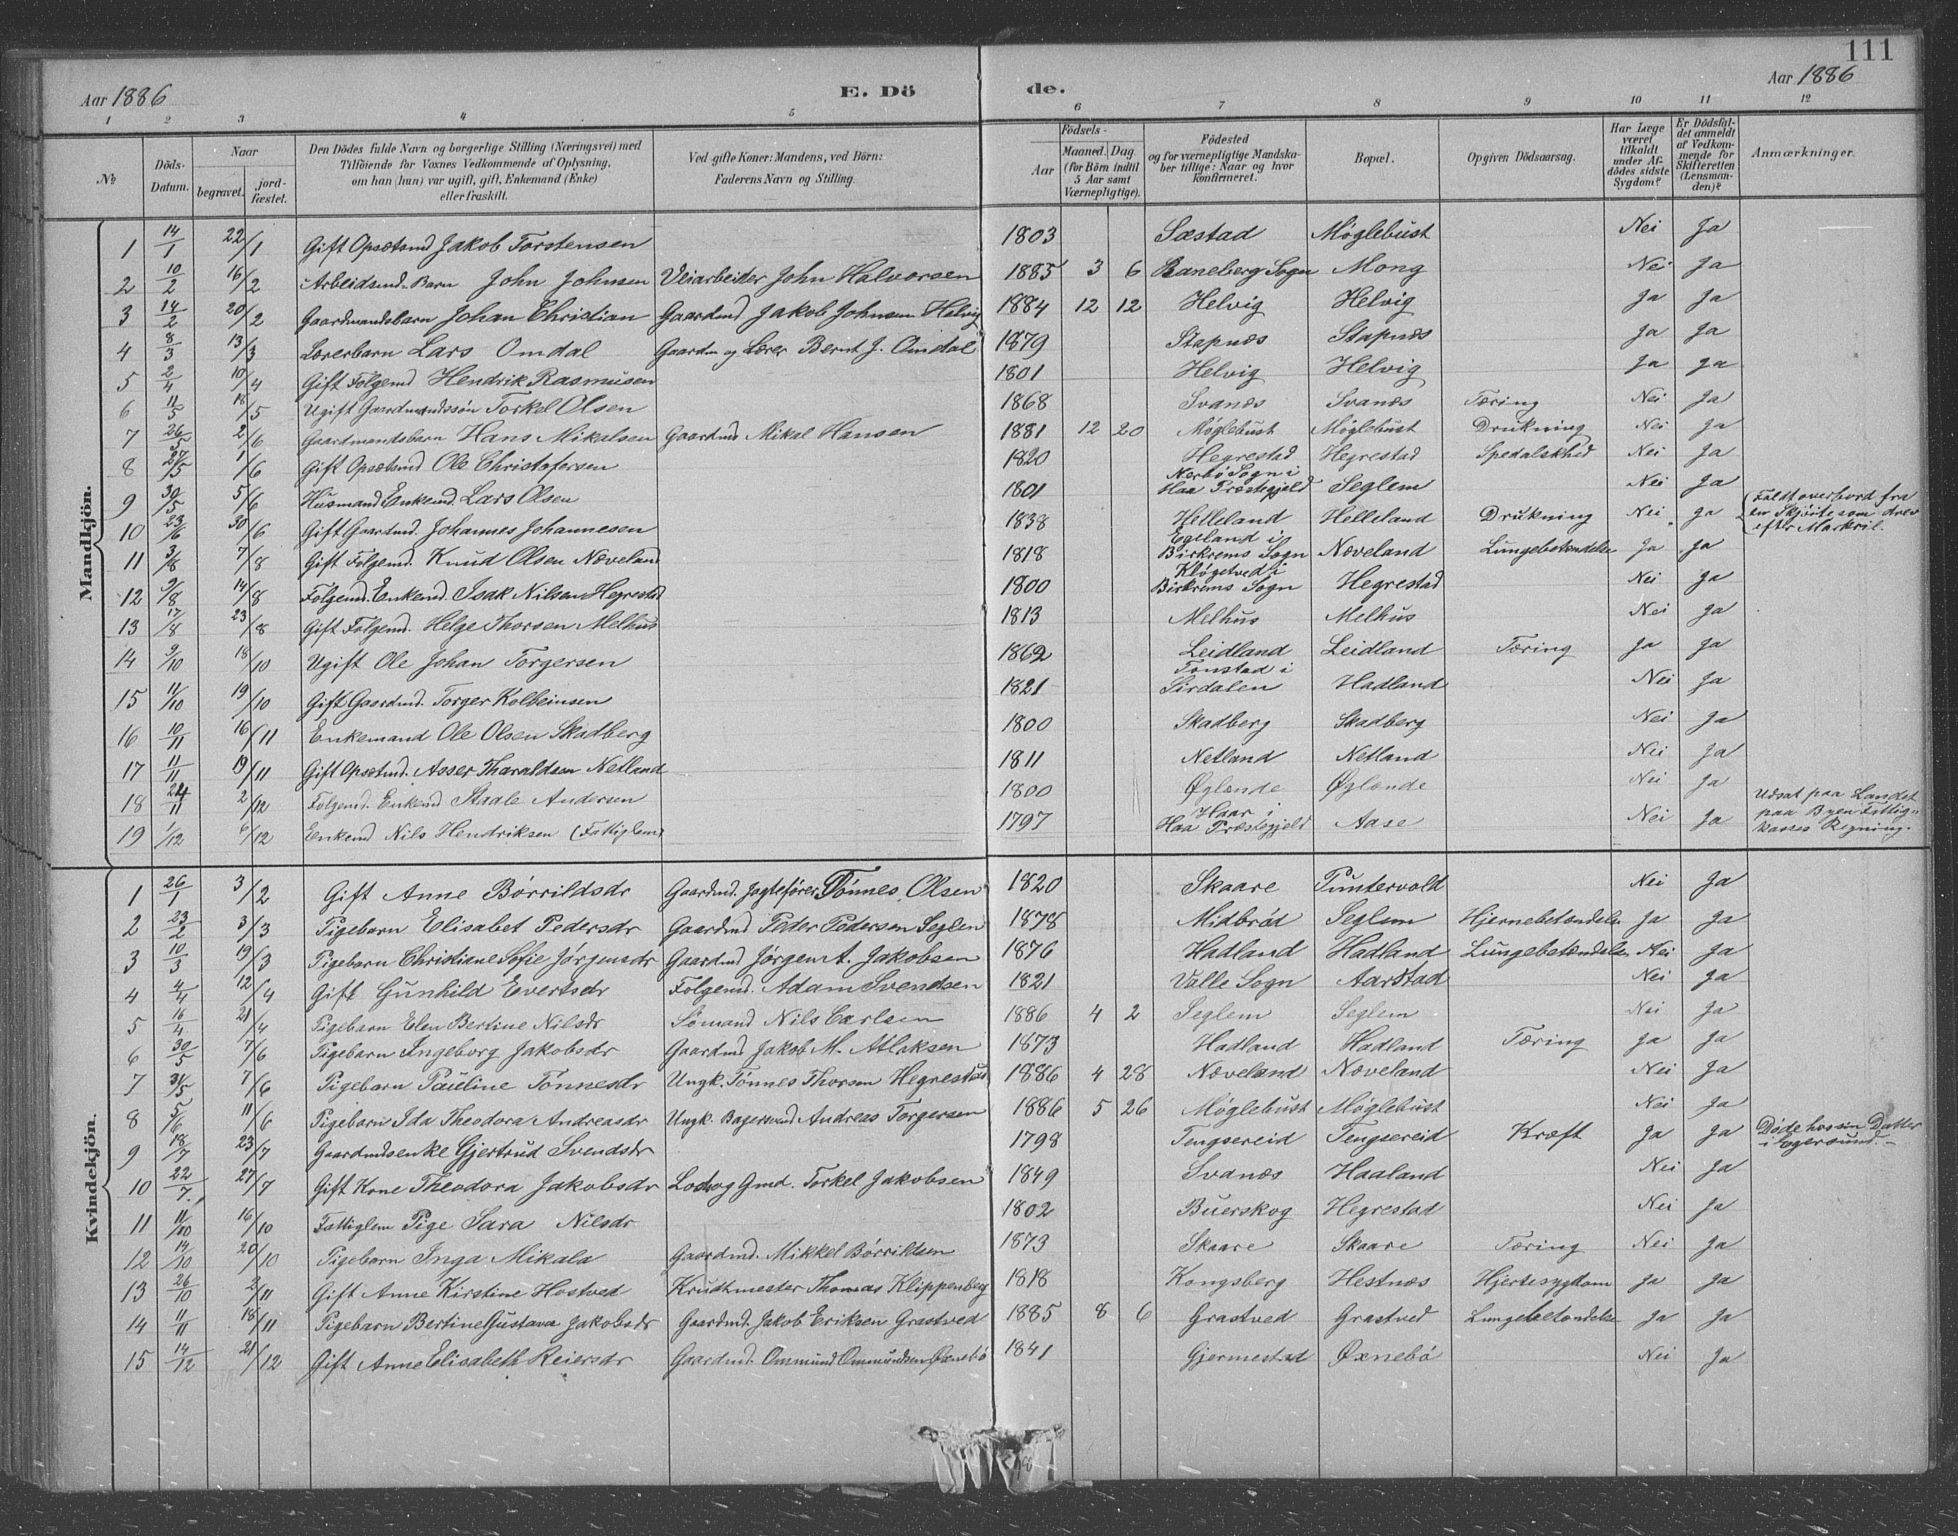 111
Aar 1886 E. Dö de. Aar 1886
1 2 3 4 5 6 7 8 9 10 11 12
№ Döds-Datum. Naar begravet. jord-fæstet. Den Dödes fulde Navn og borgerlige Stilling (Næringsvei) med Tilföiende for Voxnes Vedkommende af Oplysning, om han (hun) var ugift, gift, Enkemand (Enke) eller fraskilt. Ved gifte Koner: Mandens, ved Börn: Faderens Navn og Stilling. Födsels- Aar Maaned. Dag (for Börn indtil 5 Aar samt Værnepligtige). Födested og for værnepligtige Mandska-ber tillige: Naar og hvor konfirmeret. Bopæl. Opgiven Dödsaarsag. Har Læge været tilkaldt under Af-dödes sidste Sygdom? Er Dödsfal-det anmeldt af Vedkom-mende for Skifteretten (Lensman-den)? Anmærkninger.
Mandkjön.
1 14/1 22/1 Gift Opsætsmd Jakob Torstensen 1803 Sæstad Møglebust Nei Ja
2 10/2 16/2 Arbeidsmd. Barn John Johnsen Veiarbeider John Halvorsen 1885 3 6 Baneberg Sogn Mong Nei Ja
3 14/2 20/2 Gaardmandsbarn Johan Christian Gaardmd Jakob Johnsen Helvig 1884 12 12 Helvig Helvig Ja Ja
4 8/3 13/3 Lærerbarn Lars Omdal Gaardm og Lærer Bernt J. Omdal 1879 Stapnæs Stapnæs Ja Ja
5 2/4 10/4 Gift Folgemd Hendrik Rasmusen 1801 Helvig Helvig Ja Ja
6 11/5 18/5 Ugift Gaardmandssön Torkel Olsen 1868 Svanæs Svanæs Tæring Nei Ja
7 26/5 2/6 Gaardmandsbarn Hans Mikalsen Gaardmd Mikal Hansen 1881 12 20 Møglebust Møglebust Drukning Nei Ja
8 27/5 1/6 Gift Opsætsmd Ole Christofersen 1820 Hegrestad Hegrestad Spedalskhed Nei Ja
9 30/5 5/6 Husmand Enkemd. Lars Olsen 1801 Nærbø Sogn i Haa Præstegjeld Seglem Nei Ja
10 23/6 30/6 Gift Gaardmd. Johannes Johannesen 1838 Helleland Helleland Drukning Nei Ja Faldt overbord fra en Skjøite som drev efter Markril.
11 3/8 7/8 Gift Folgemd. Knud Olsen Næveland 1818 Egeland i Birkrems Sogn Næveland Lungebetændelse Ja Ja
12 9/8 14/8 Folgemd. Enkemd. Isak Nilsen Hegrestad 1800 Kløgetved i Birkrems Sogn Hegrestad Nei Ja
13 17/8 23/8 Gift Folgemd. Helge Thorsen Melhus 1813 Melhus Melhus Nei Ja
14 9/10 18/10 Ugift Ole Johan Torgersen 1862 Leidland Leidland Tæring Ja Ja
15 11/10 19/10 Gift Gaardmd. Torger Kolbeinsen 1821 Tonstad i Sirdalen Hadland Nei Ja
16 10/11 16/11 Enkemand Ole Olsen Skadberg 1800 Skadberg Skadberg Nei Ja
17 11/11 19/11 Gift Opsætmd. Asser Tharaldsen Netland 1811 Netland Netland Nei Ja
18 24/11 2/12 Folgemd. Enkemd Staale Andersen 1800 Øglænde Øglænde Nei Ja
19 1/12 6/12 Enkemd Nils Hendriksen (Fattiglem) 1797 Haar i Haa Præstegjeld Aase Nei Ja Udsat paa Landet paa Byen Fattig-kasses Regning.
Kvindekjön.
1 26/1 3/2 Gift Anne Børrildsdr Gaardmd. Jagtefører Tönnes Olsen 1820 Skaare Puntervold Nei Ja
2 23/2 3/3 Pigebarn Elisabet Pedersdr Gaardmd Peder Pedersen Seglem 1878 Midbrød Seglem Hjernebetændelse Ja Ja
3 10/3 19/3 Pigebarn Christiane Sofie Jørgensdr Gaardmd Jørgen A. Jakobsen 1876 Hadland Hadland Lungebetændelse Nei Ja
4 4/4 12/4 Gift Gunhild Evertsdr Folgemd. Adam Svendsen 1821 Valle Sogn Aarstad Nei Ja
5 16/4 21/4 Pigebarn Elen Bertine Nilsdr Sömand Nils Carlsen 1886 4 2 Seglem Seglem Nei Ja
6 30/5 7/6 Pigebarn Ingeborg Jakobsdr Gaardmd Jakob M. Atlaksen 1873 Hadland Hadland Tæring Ja Ja
7 31/5 7/6 Pigebarn Pauline Tönnesdr Ungk. Tönnes Thorsen Hegrestad 1886 4 28 Næveland Næveland Nei Ja
8 5/6 11/6 Pigebarn Ida Theodora Andreasdr Ungk. Bagersvend Andreas Torgersen 1886 5 26 Møglebust Møglebust Nei Ja
9 18/7 23/7 Gaardmdsenke Gjertrud Svendsdr 1798 Tengsereid Tengsereid Kræft Ja Ja Døde hos sin Datter i Egersund.
10 22/7 27/7 Gift Kone Theodora Jakobsdr Lods og Gmd. Torkel Jakobsen 1849 Svanæs Haaland Nei Ja
11 11/10 16/10 Fattiglem Pige Sara Nilsdr 1802 Buerskog Hegrestad Nei Ja
12 14/10 20/10 Pigebarn Inga Mikala Gaardmd. Mikkel Börrildsen 1873 Skaare Skaare Tæring Nei Ja
13 26/10 2/11 Gift Anne Kirstine Hostved Krudtmester Thomas Klippenberg 1818 Kongsberg Hestnæs Hjertesygdom Ja Ja
14 11/11 18/11 Pigebarn Bertine Gustava Jakobsdr Gaardmd. Jakob Eriksen Grastved 1885 8 6 Grastved Grastved Lungebetændelse Ja Ja
15 14/12 21/12 Gift Anne Elisabeth Reiersdr Gaardmd. Ommund Ommundsen Øxnebö 1841 Gjermestad Øxnebö Nei Ja